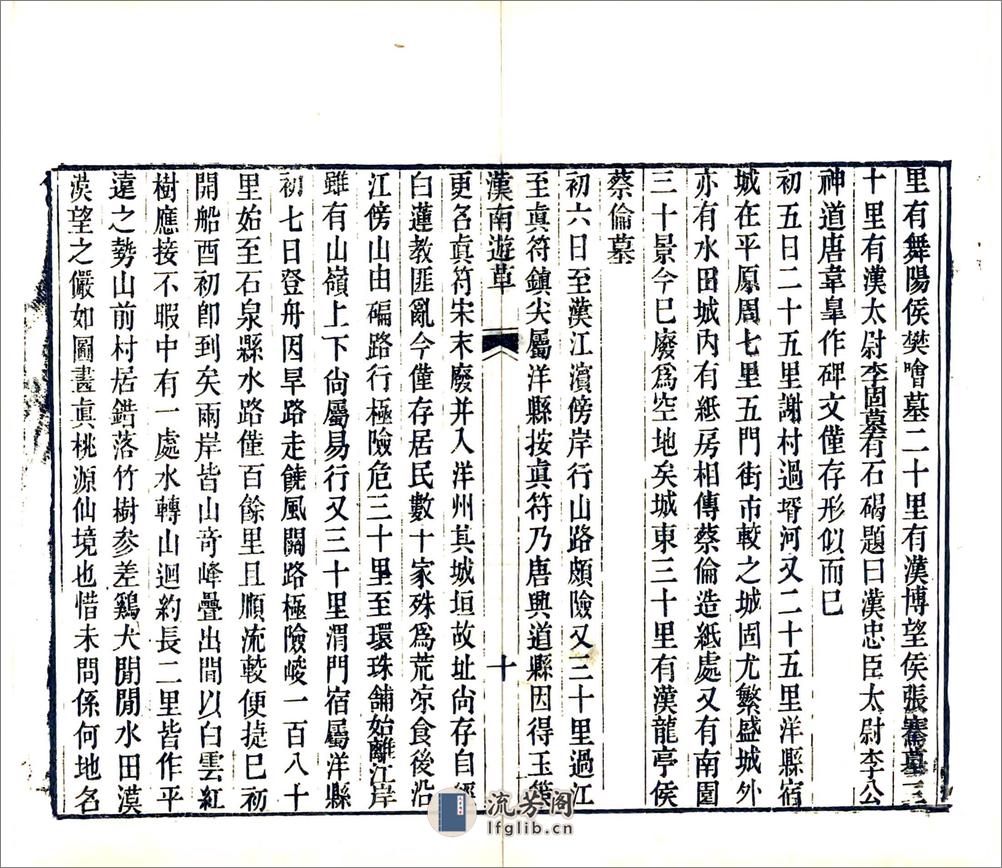 里有舞陽侯樊噲墓二十里有漢博望侯張騫墓三
十里有漢太尉李固墓有石碣題曰漢忠臣太尉李公
神道唐韋皐作碑文僅存形似而已
初五日二十五里謝村過壻河又二十五里洋縣宿
城在平原周七里五門街市較之城固尤繁盛城外
亦有水田城內有紙房相傳蔡倫造紙處又有南園
三十景今已廢爲空地矣城東三十里有漢龍亭侯
蔡倫墓
初六日至漢江濱傍岸行山路頗險又三十里過江
至眞符鎮尖屬洋縣按眞符乃唐興道縣因得玉
漢南遊草
十
更名眞符宋末廢并入洋州其城垣故址尙存自經
白蓮教匪亂今僅存居民數十家殊爲荒凉食後沿
江傍山由碥路行極險危三十里至環珠舖始離江岸
雖有山嶺上下尙屬易行又三十里渭門宿屬洋縣
初七日登舟因旱路走饒風關路極險峻一百八十
里始至石泉縣水路僅百餘里且順流較便捷巳初
開船酉初卽到矣兩岸皆山奇峰疊出間以白雲紅
樹應接不暇中有一處水轉山迴約長二里皆作平
遠之勢山前村居錯落竹樹參差鷄犬閒閒水田漠
漠望之儼如圖畫眞桃源仙境也惜未問係何地名
流芳阁
lfglib.cn